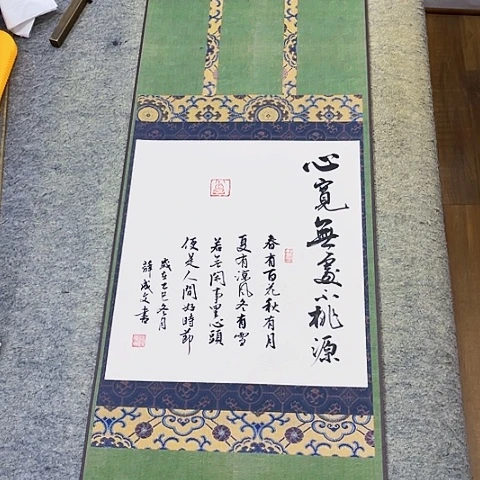 心寬無處不桃源
春有百花秋有月
夏有涼風冬有雪
若無闲事里心頭
便是人間好時節
歲在乙巳冬月
薛成文書